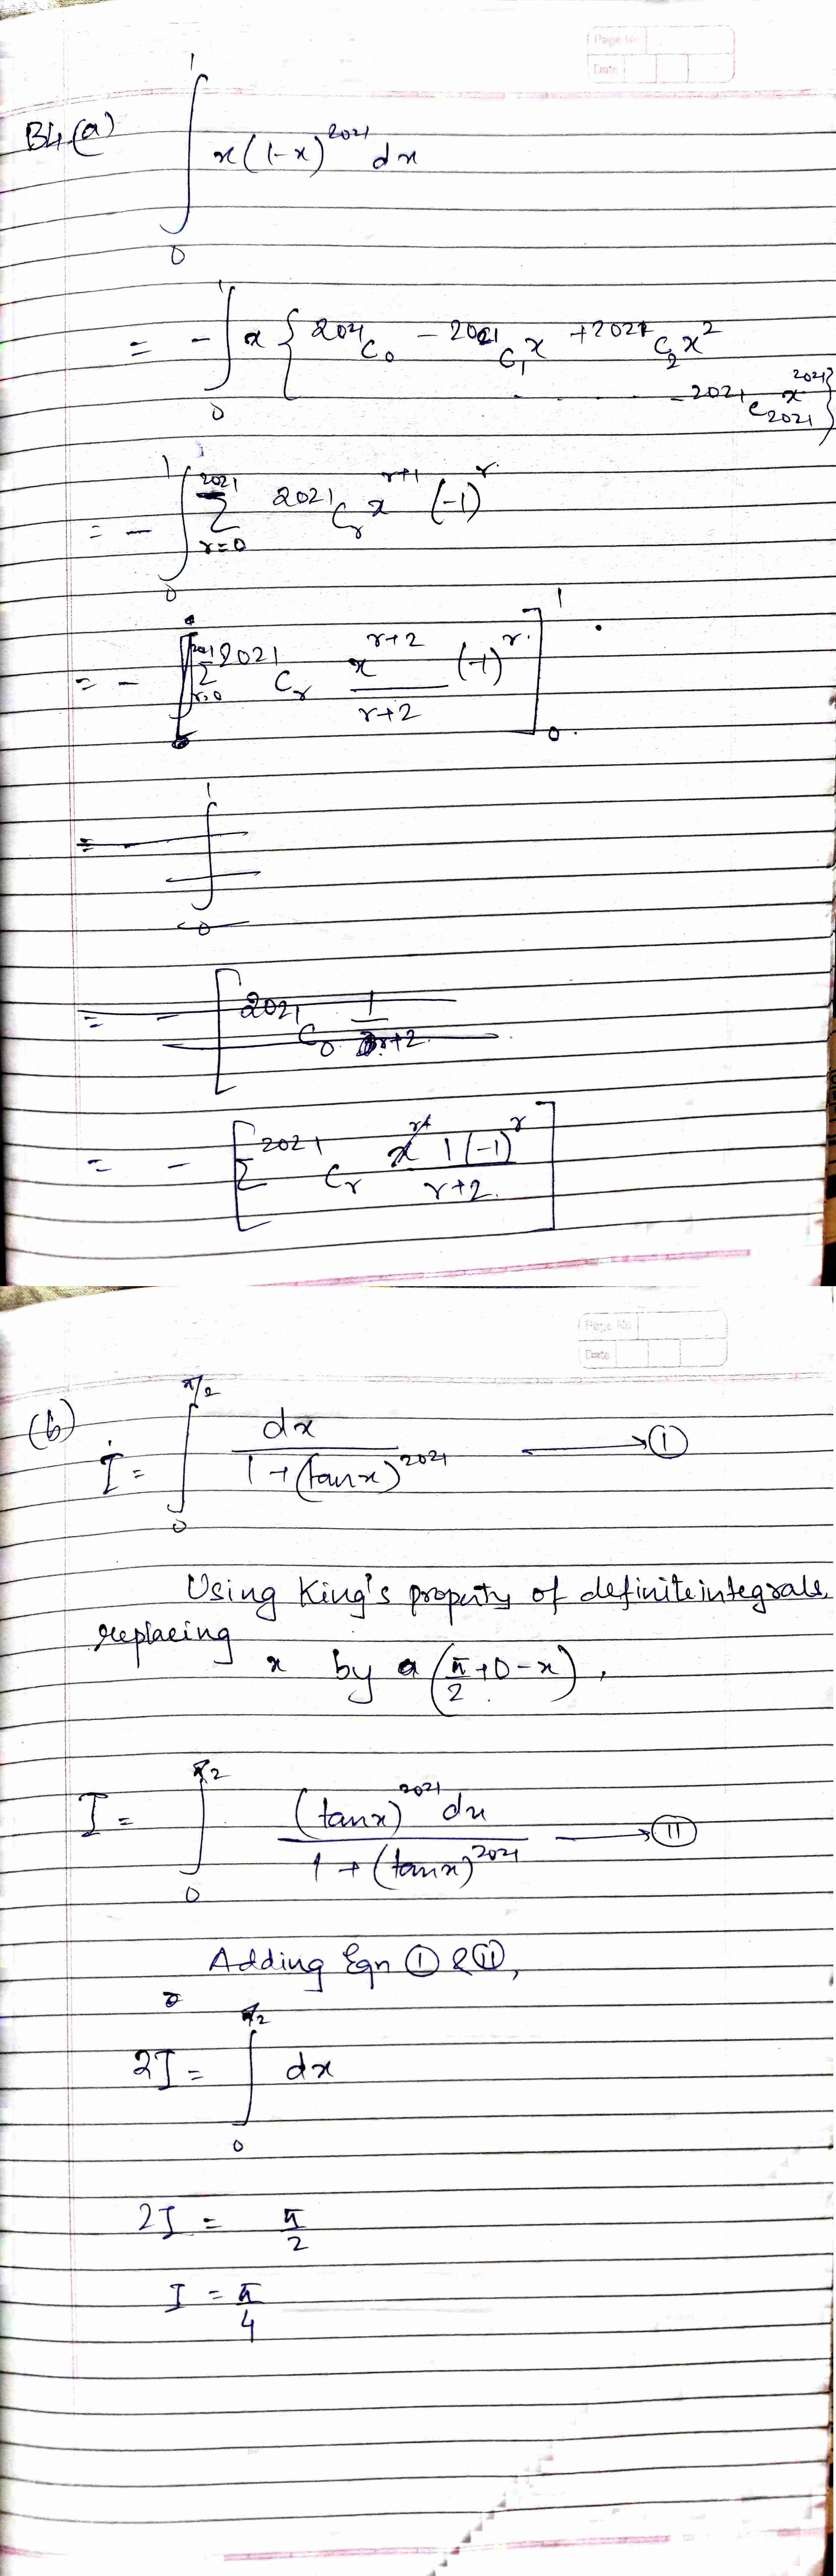 Page No
Date
B4.(a) ∫₀¹ x(1-x)^2021 dx
= - ∫₀¹ x { ^2021C₀ - ^2021C₁ x + ^2021C₂ x²
. . . . - ^2021C_2021 x^2021 }
= - ∫₀¹ Σ_{r=0}^{2021} ^2021C_r x^{r+1} (-1)^r
= - [ Σ_{r=0}^{2021} ^2021C_r x^{r+2}/(r+2) (-1)^r ]₀¹
= - [ Σ ^2021C_r 1(-1)^r/(r+2) ]
Page No
Date
(b) I = ∫₀^{π/2} dx/(1+(tanx)^2021) → Ⓘ
Using King's property of definite integrals,
replacing
x by (π/2+0-x),
I = ∫₀^{π/2} (tanx)^2021 dx/(1+(tanx)^2021) → Ⓘⓘ
Adding Eqn Ⓘ & Ⓘⓘ,
2I = ∫₀^{π/2} dx
2I = π/2
I = π/4